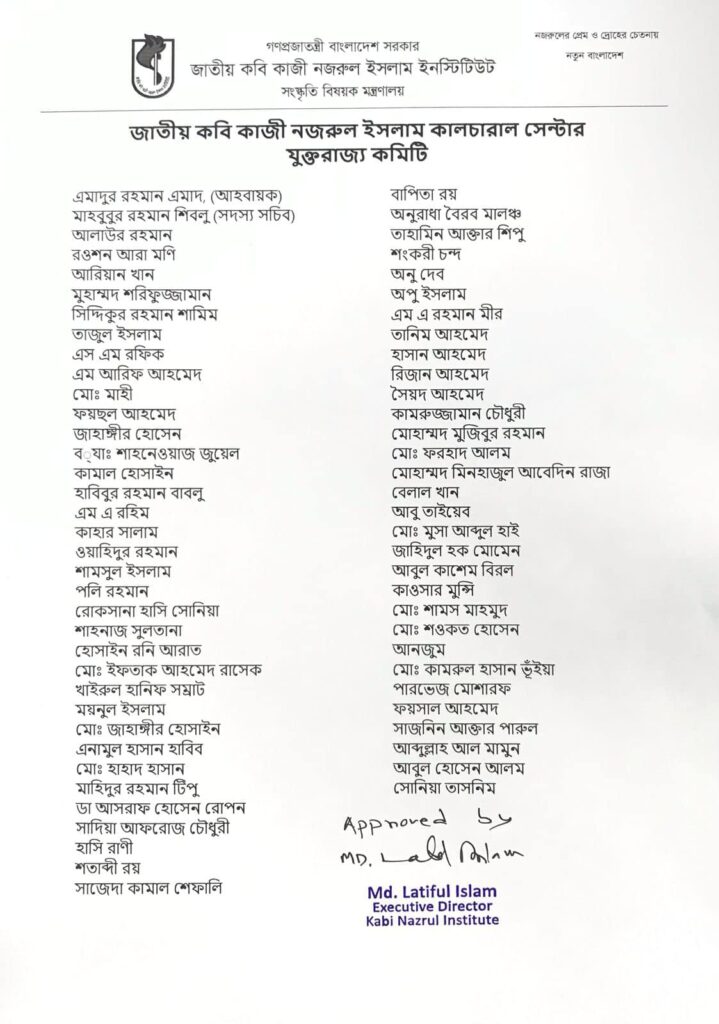 নজরুলের প্রেম ও দ্রোহের চেতনায়
নতুন বাংলাদেশ
গণপ্রজাতন্ত্রী বাংলাদেশ সরকার
জাতীয় কবি কাজী নজরুল ইসলাম ইনস্টিটিউট
সংস্কৃতি বিষয়ক মন্ত্রণালয়
জাতীয় কবি কাজী নজরুল ইসলাম কালচারাল সেন্টার
যুক্তরাজ্য কমিটি
এমাদুর রহমান এমাদ, (আহবায়ক)
মাহবুবুর রহমান শিবলু (সদস্য সচিব)
আলাউর রহমান
রওশন আরা মণি
আরিয়ান খান
মুহাম্মদ শরিফুজ্জামান
সিদ্দিকুর রহমান শামিম
তাজুল ইসলাম
এস এম রফিক
এম আরিফ আহমেদ
মোঃ মাহী
ফয়ছল আহমেদ
জাহাঙ্গীর হোসেন
ব্যাঃ শাহনেওয়াজ জুয়েল
কামাল হোসাইন
হাবিবুর রহমান বাবলু
এম এ রহিম
কাহার সালাম
ওয়াহিদুর রহমান
শামসুল ইসলাম
পলি রহমান
রোকসানা হাসি সোনিয়া
শাহনাজ সুলতানা
হোসাইন রনি আরাত
মোঃ ইফতাক আহমেদ রাসেক
খাইরুল হানিফ সম্রাট
ময়নুল ইসলাম
মোঃ জাহাঙ্গীর হোসাইন
এনামুল হাসান হাবিব
মোঃ হাহাদ হাসান
মাহিদুর রহমান টিপু
ডা আসরাফ হোসেন রোপন
সাদিয়া আফরোজ চৌধুরী
হাসি রাণী
শতাব্দী রয়
সাজেদা কামাল শেফালি
বাপিতা রয়
অনুরাধা বৈরব মালঞ্চ
তাহামিন আক্তার শিপু
শংকরী চন্দ
অনু দেব
অপু ইসলাম
এম এ রহমান মীর
তানিম আহমেদ
হাসান আহমেদ
রিজান আহমেদ
সৈয়দ আহমেদ
কামরুজ্জামান চৌধুরী
মোহাম্মদ মুজিবুর রহমান
মোঃ ফরহাদ আলম
মোহাম্মদ মিনহাজুল আবেদিন রাজা
বেলাল খান
আবু তাইয়েব
মোঃ মুসা আব্দুল হাই
জাহিদুল হক মোমেন
আবুল কাশেম বিরল
কাওসার মুন্সি
মোঃ শামস মাহমুদ
মোঃ শওকত হোসেন
আনজুম
মোঃ কামরুল হাসান ভূঁইয়া
পারভেজ মোশারফ
ফয়সাল আহমেদ
সাজনিন আক্তার পারুল
আব্দুল্লাহ আল মামুন
আবুল হোসেন আলম
সোনিয়া তাসনিম
Approved by
MD.
Md. Latiful Islam
Executive Director
Kabi Nazrul Institute